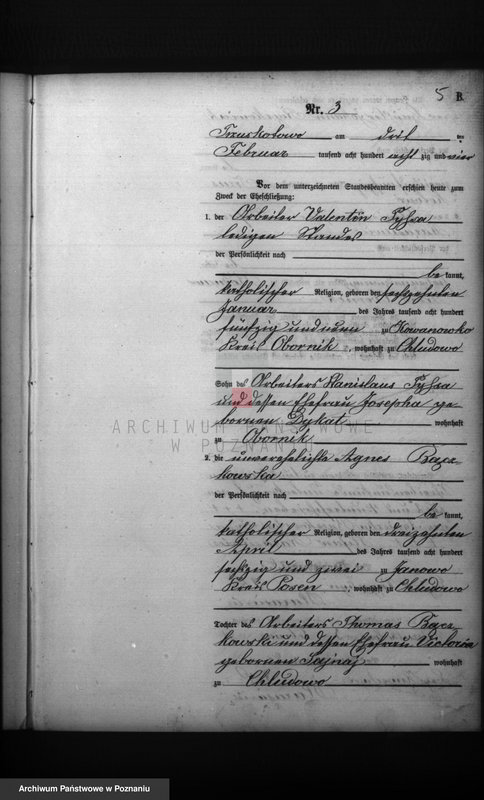 5 B.
Nr. 3
Truskotowo am drit en
Februar tausend acht hundert acht zig und vier
Vor dem unterzeichneten Standesbeamten erschien heute zum
Zweck der Eheschließung:
1. der Arbeiter Valentin Pyssa
ledigen Standes
der Persönlichkeit nach
be kannt,
katholischer Religion, geboren den sechzehnten
Januar des Jahres tausend acht hundert
fünfzig und neun zu Kowanowko
Kreis Obornik, wohnhaft zu Chludowo
Sohn des Arbeiters Stanislaus
und dessen Ehefrau Josepha ge
bornen Dykat wohnhaft
zu Obornik
ARCHIWUM PAŃSTWOWE
W POZNANIU
2. die unverehelichte Agnes
kowska
der Persönlichkeit nach
be kannt,
katholischer Religion, geboren den dreizehnten
April des Jahres tausend acht hundert
sechzig und zwei zu Janowo
Kreis Posen, wohnhaft zu Chludowo
Tochter des Arbeiters Thomas
kowski und dessen Ehefrau Victoria
gebornen wohnhaft
zu Chludowo
Archiwum Państwowe w Poznaniu